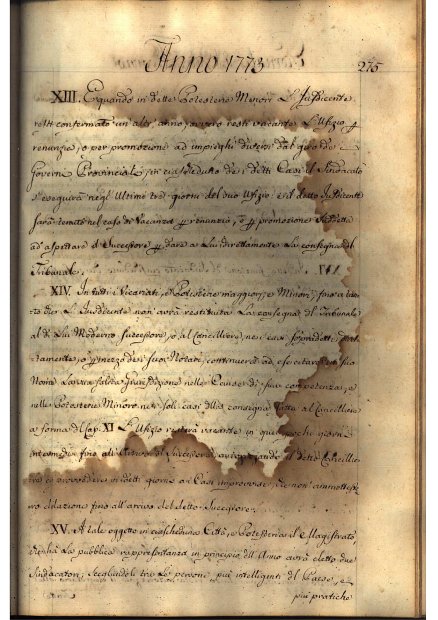 Anno 1773
275
XIII. E quando in dette Potesterie Minori L'Jusdicente
resti confermato un altr'anno, ovvero resti vacante L'Ufizio p
renunzia, o per promozione ad impieghi diversi dal giro dei
Governi Provinciali, in ciascheduno dei detti Casi il Sindacato
s'eseguirà negl'Ultimi tre giorni del suo Ufizio: e il detto Jusdicente
sarà tenuto nel caso di Vacanza p renunzia, o p promozione
ad aspettare il Successore p dare a Lui direttamente La consegna del
Tribunale.
XIV. In tutti i Vicariati, e Potesterie maggiori, e Minori, fino a tanto
che L'Jusdicente non avrà restituita La consegna del Tribunale
al di Lui Moderno Successore, o al Cancelliere, nei casi
o p mezzo dei suoi Notari, continuerà ad esercitare in suo
Nome La sua solita Giurisdizione nelle Cause di sua competenza, e
nelle Potesterie Minori nei soli casi della consegna fatta al Cancelliere
a forma del Cap. XI L'Ufizio resterà vacante in quei pochi giorni
intermedi fino all'Arrivo del Successore, detto Cancelliere
a provvedere in detti giorni ai Casi improvvisi, che non ammettessero
dilazione fino all'arrivo del detto Successore.
XV. A tale oggetto in ciascheduna Città, e Potesteria il Magistrato,
La pubblica rappresentanza in principio dell'Anno avrà eletto due
Sindacatori, Scegliendoli tra Le persone più intelligenti del Paese, e
più pratiche